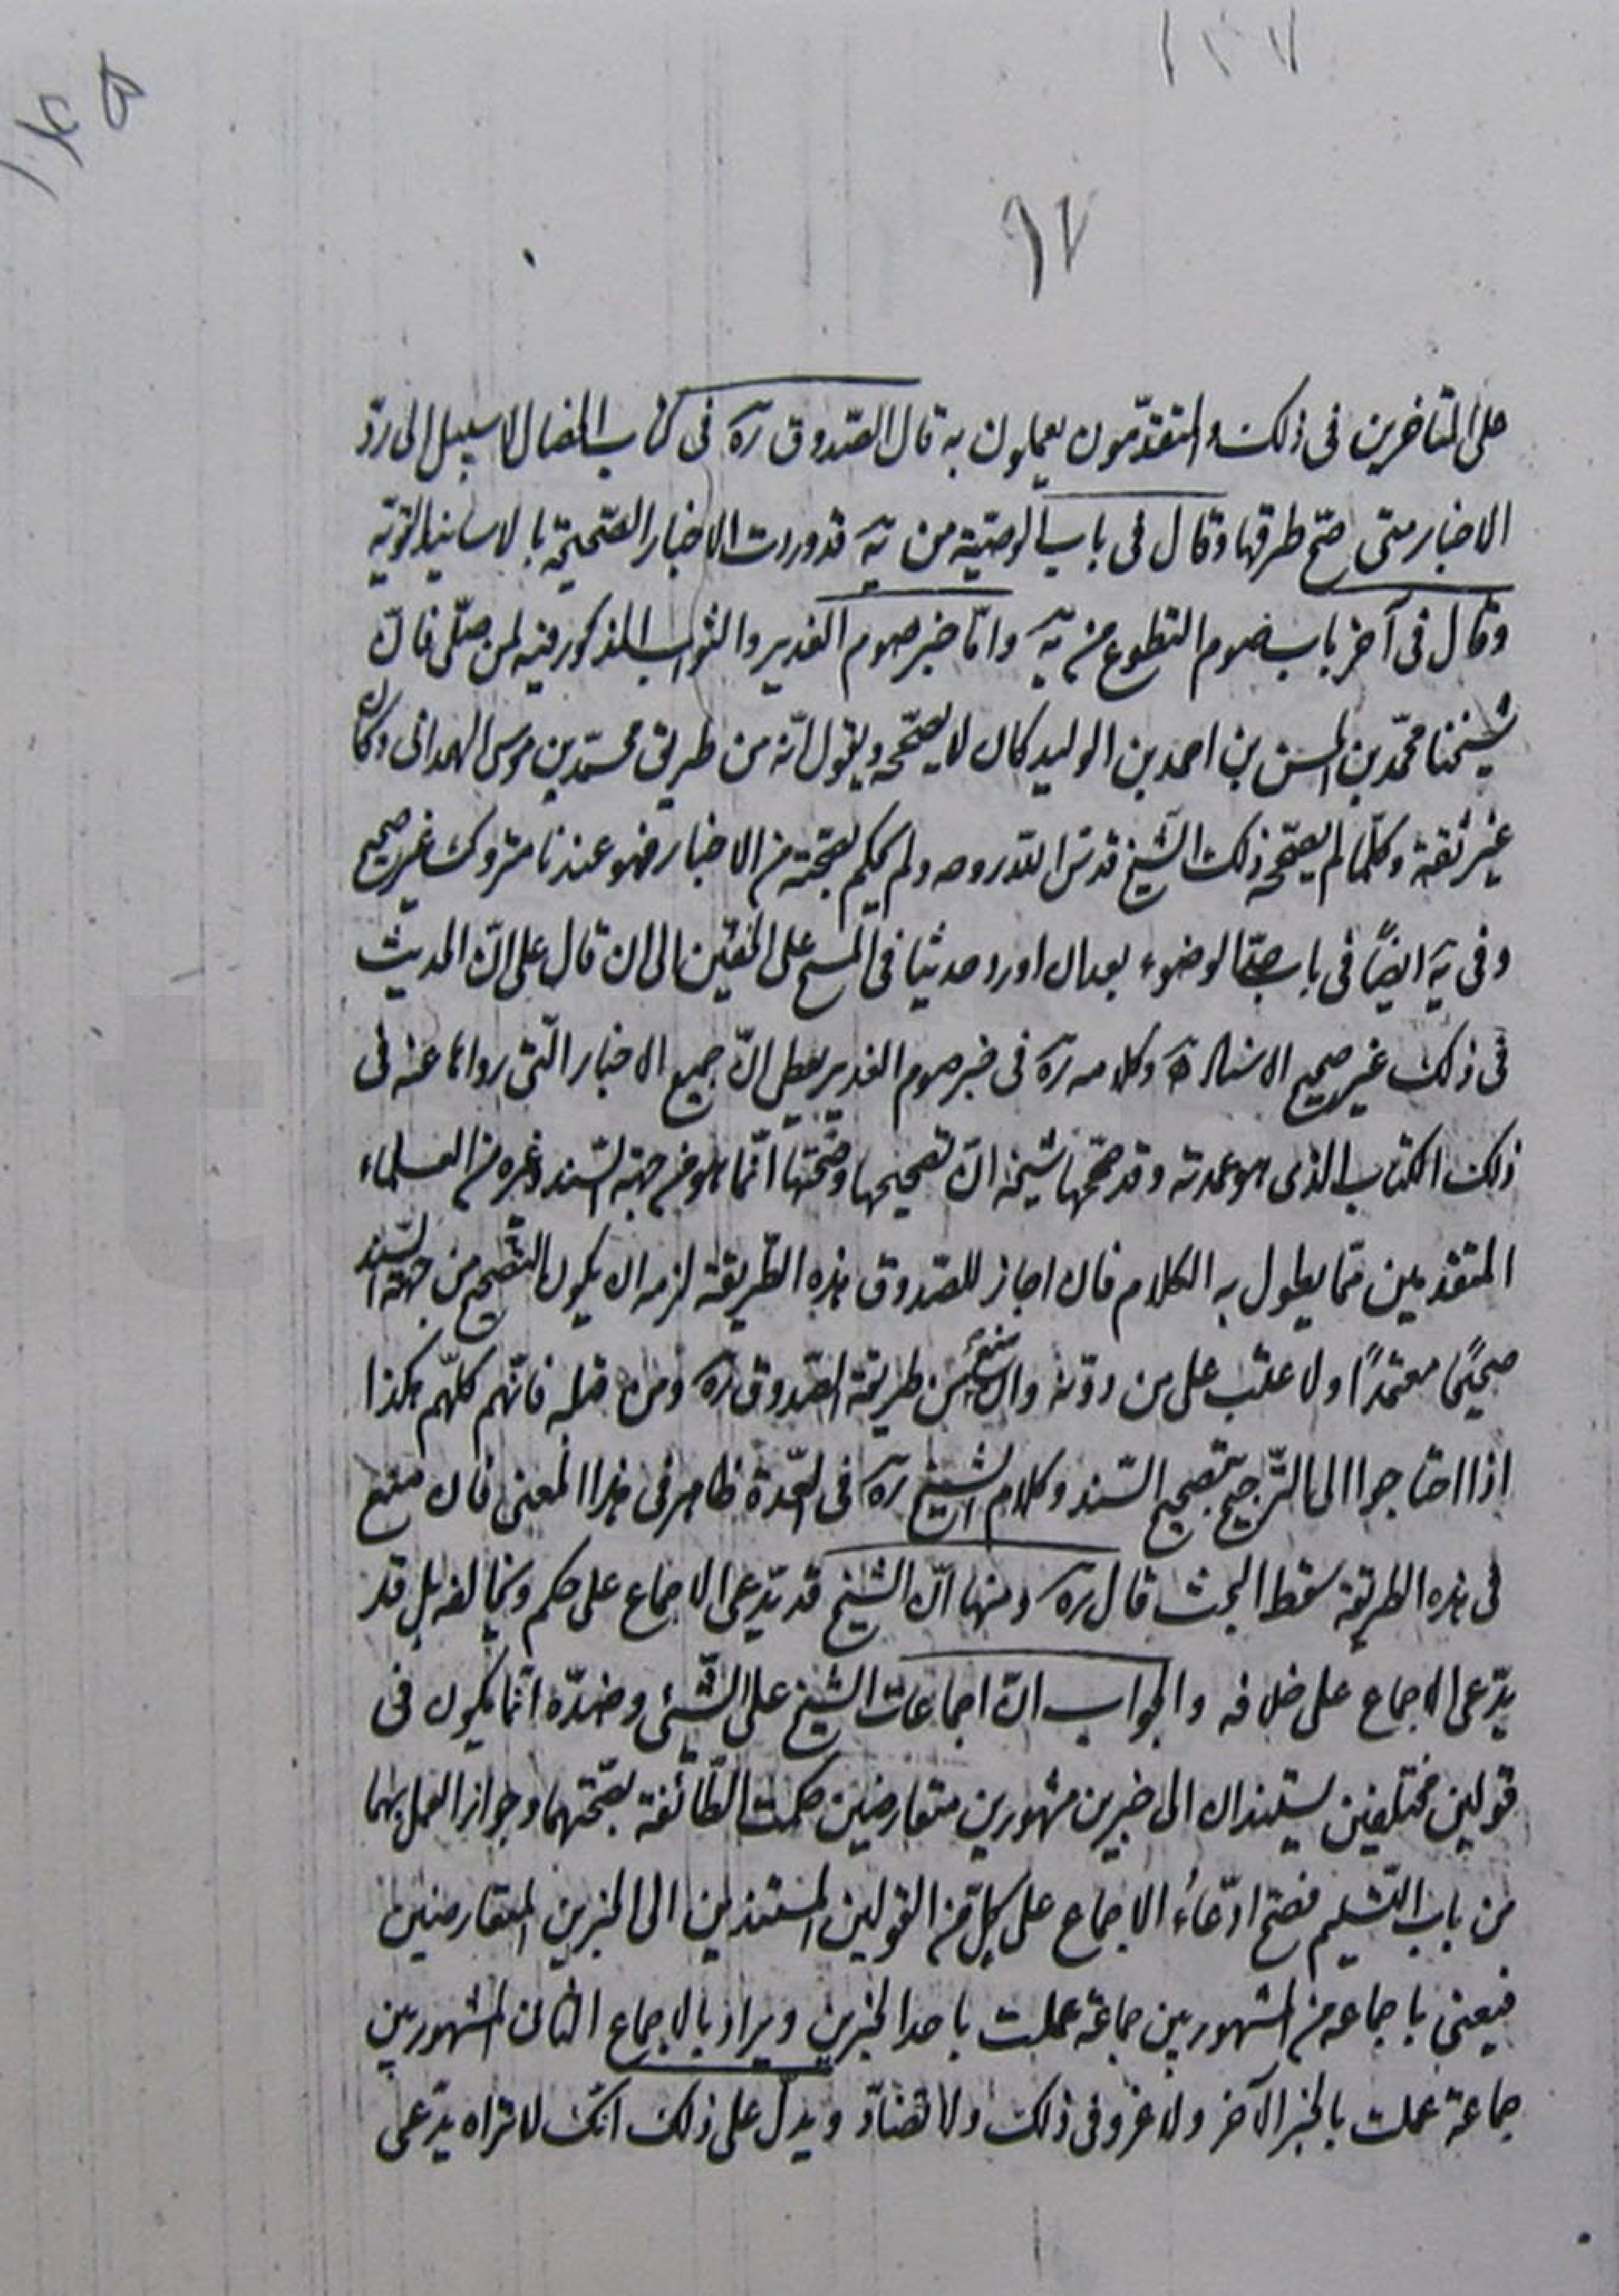 ١٢٧
١٤٥
٩٧
على المتاخرين فى ذلك والمتقدّمون يعملون به قال الصّدوق ره فى كتاب الخصال لا سبيل الى ردّ
الاخبار متى صحّ طرقها وقال فى باب الوصيّة من يه قد وردت الاخبار الصّحيحة بالاسانيد القويّة
وقال فى آخر باب صوم التطوع من يه وامّا خبر صوم الغدير والثواب المذكور فيه لمن صلّى فانّ
شيخنا محمّد بن الحسن بن احمد بن الوليد كان لا يصحّحه ويقول انّه من طريق محمّد بن موسى الهمدانى وكان
غير ثقة وكلّما لم يصحّحه ذلك الشّيخ قدّس اللّه روحه ولم يحكم بصحّته من الاخبار فهو عندنا متروك غير صحيح
وفى يه ايضًا فى باب حدّ الوضوء بعد ان اورد حديثا فى المسح على الخفّين الى ان قال على انّ الحديث
فى ذلك غير صحيح الاسناد وكلامه ره فى خبر صوم الغدير يعطى انّ جميع الاخبار الّتى رواها عنه فى
ذلك الكتاب الذى هو عمدته وقد صحّحها شيخه انّ تصحيحها وصحّتها انّما هو من جهة السّند وغيره من العلماء
المتقدمين ممّا يطول به الكلام فان اجاز للصّدوق هذه الطّريقة لزمه ان يكون التّصحيح من جهة السّند
صحيحًا معتمدًا ولا عتب على من دوّنه وان طريقة الصّدوق ره ومن قبله فانّهم كلّهم هكذا
اذا احتاجوا الى التّرجيح بتصحيح السّند وكلام الشيخ ره فى العدّة ظاهر فى هذا المعنى فان منع
فى هذه الطريقة سقط البحث قال ره ومنها انّ الشيخ قد يدّعى الاجماع على حكم ويخالفه بل قد
يدّعى الاجماع على خلافه والجواب انّ اجماعات الشيخ على الشّىء وضدّه انّما يكون فى
قولين مختلفين يستندان الى خبرين مشهورين متعارضين حكمت الطّائفة بصحّتهما وجواز العمل بهما
من باب التّسليم فصحّ ادّعاء الاجماع على كلّ من القولين المستندين الى الخبرين المتعارضين
فيعنى باجماعه من المشهورين جماعة عملت باحد الخبرين ويراد بالاجماع الثانى المشهورين
جماعة عملت بالخبر الآخر ولا غرو فى ذلك ولا تضادّ ويدلّ على ذلك انّك لا تراه يدّعى